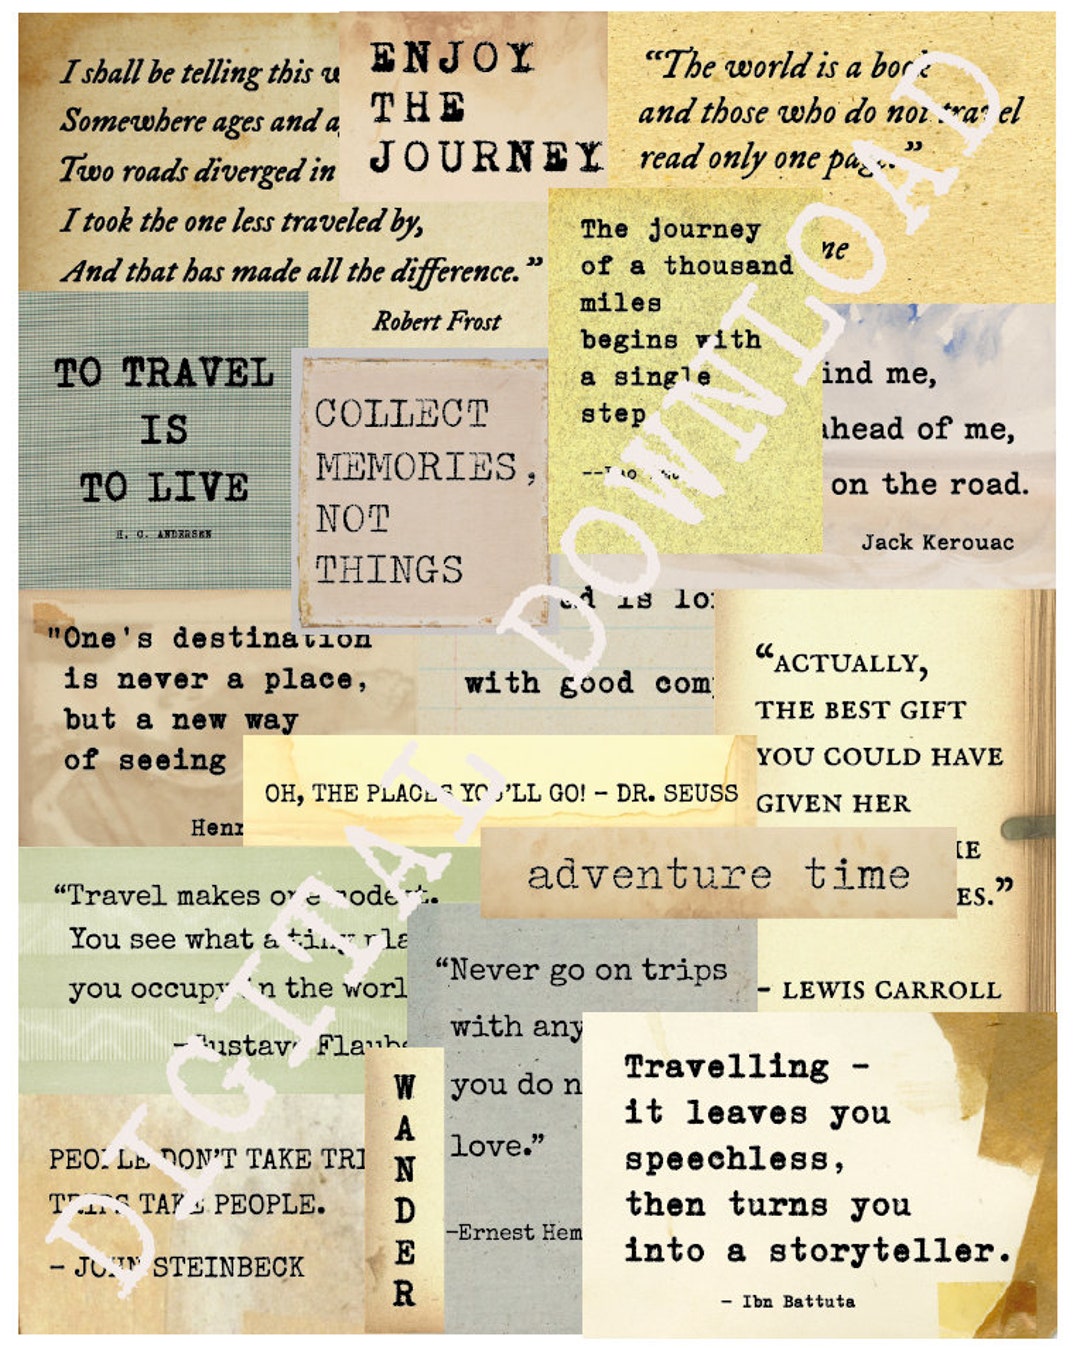 I shall be telling this
Somewhere ages and
Two roads diverged in
I took the one less traveled by,
And that has made all the difference.”
Robert Frost
ENJOY
THE
JOURNEY
“The world is a book
and those who do not travel
read only one page.”
The journey
of a thousand
miles
begins with
a single
step
me,
ahead of me,
on the road.
Jack Kerouac
TO TRAVEL
IS
TO LIVE
H. C. ANDERSEN
COLLECT
MEMORIES,
NOT
THINGS
"One's destination
is never a place,
but a new way
of seeing
is
with good
“ACTUALLY,
THE BEST GIFT
YOU COULD HAVE
GIVEN HER
- LEWIS CARROLL
OH, THE PLACES YOU'LL GO! – DR. SEUSS
adventure time
“Travel makes one modest.
You see what a tiny
you occupy in the
-Gustave
“Never go on trips
with
you do
love.”
-Ernest
PEOPLE DON'T TAKE
TRIPS TAKE PEOPLE.
– JOHN STEINBECK
WANDER
Travelling –
it leaves you
speechless,
then turns you
into a storyteller.
- Ibn Battuta
DIGITAL DOWNLOAD